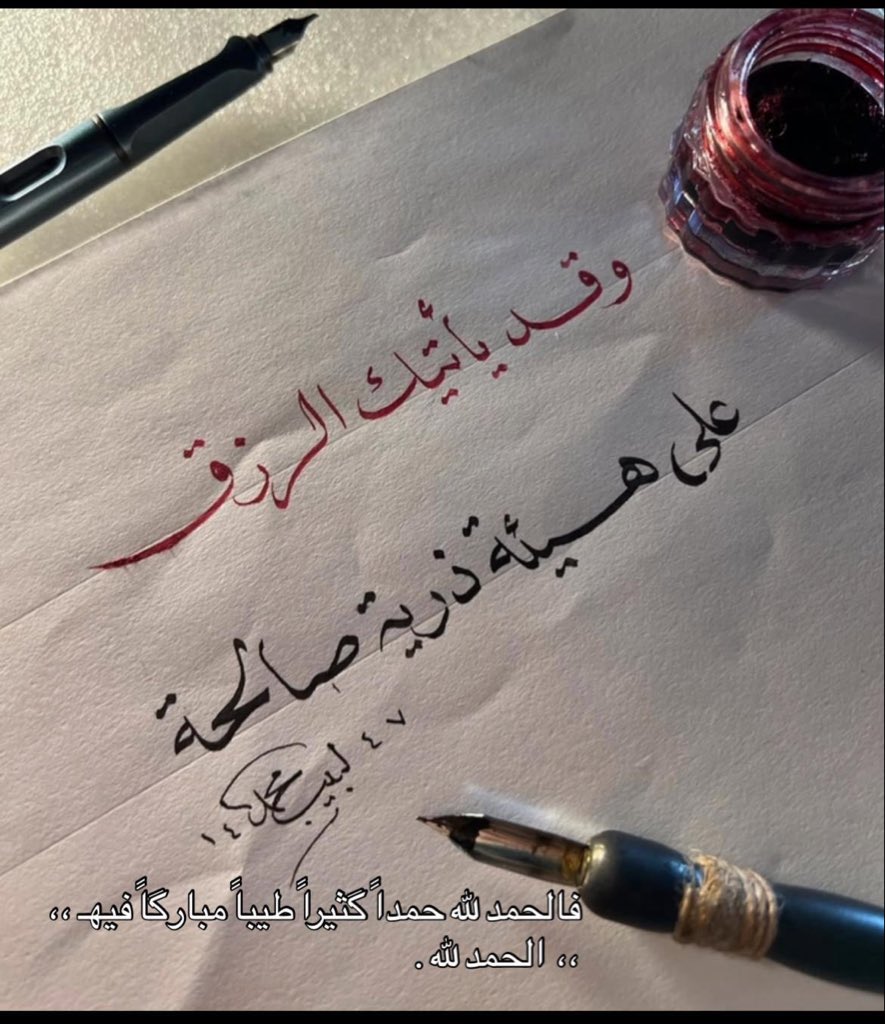 وقد يأتيك الرزق
على هيئة ذرية صالحة
لبيب محمد ١٤٤٧
فالحمد لله حمداً كثيراً طيباً مباركاً فيهـ ،،
،، الحمد لله .